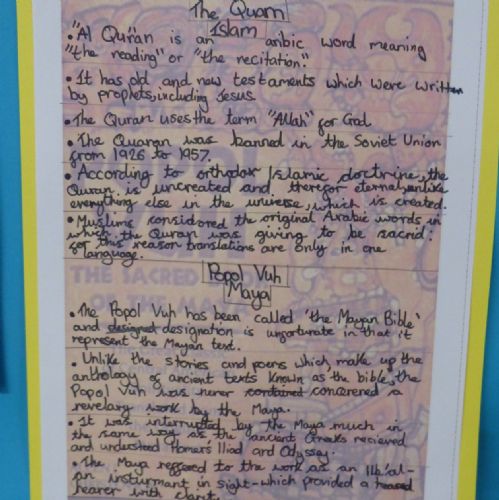 The Quarn
Islam
"Al Qur'an is an aribic word meaning
"the reading" or "the recitation."
It has old and new testaments which were written
by prophets, including Jesus.
The Quran uses the term "Allah" for God.
The Quaran was banned in the Soviet Union
from 1926 to 1957.
According to orthodox Islamic doctrine, the
Quran is uncreated and therefor eternal, unlike
everything else in the universe, which is created.
Muslims considored the original Arabic words in
which the Quran was giving to be sacrid.
for this reason translations are only in one
language.
THE SACRED
OF THE MA
Popol Vuh
Maya
The Popol Vuh has been called 'the Mayan Bible'
and designed designation is unfortunate in that it
represent the Mayan text.
Unlike the stories and poems which, make up the
anthology of ancient texts known as the bible, the
Popol Vuh was never concerened a
revelary work by the Maya.
It was interrupted by the Maya much in
the same way as the ancient Greeks recieved
and understood Homers Iliad and Odyssey.
The Maya reffered to the work as an Ilb'al-
an insturmant in sight-which provided a
hearer with